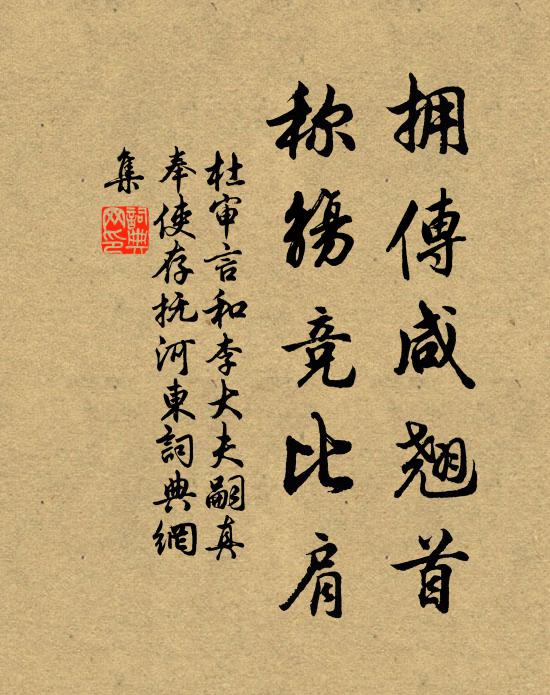 拥傳咸翘首
称觴竞比肩
杜审言和李大夫嗣真
奉使存抚河東詞典網
集
詞典网印